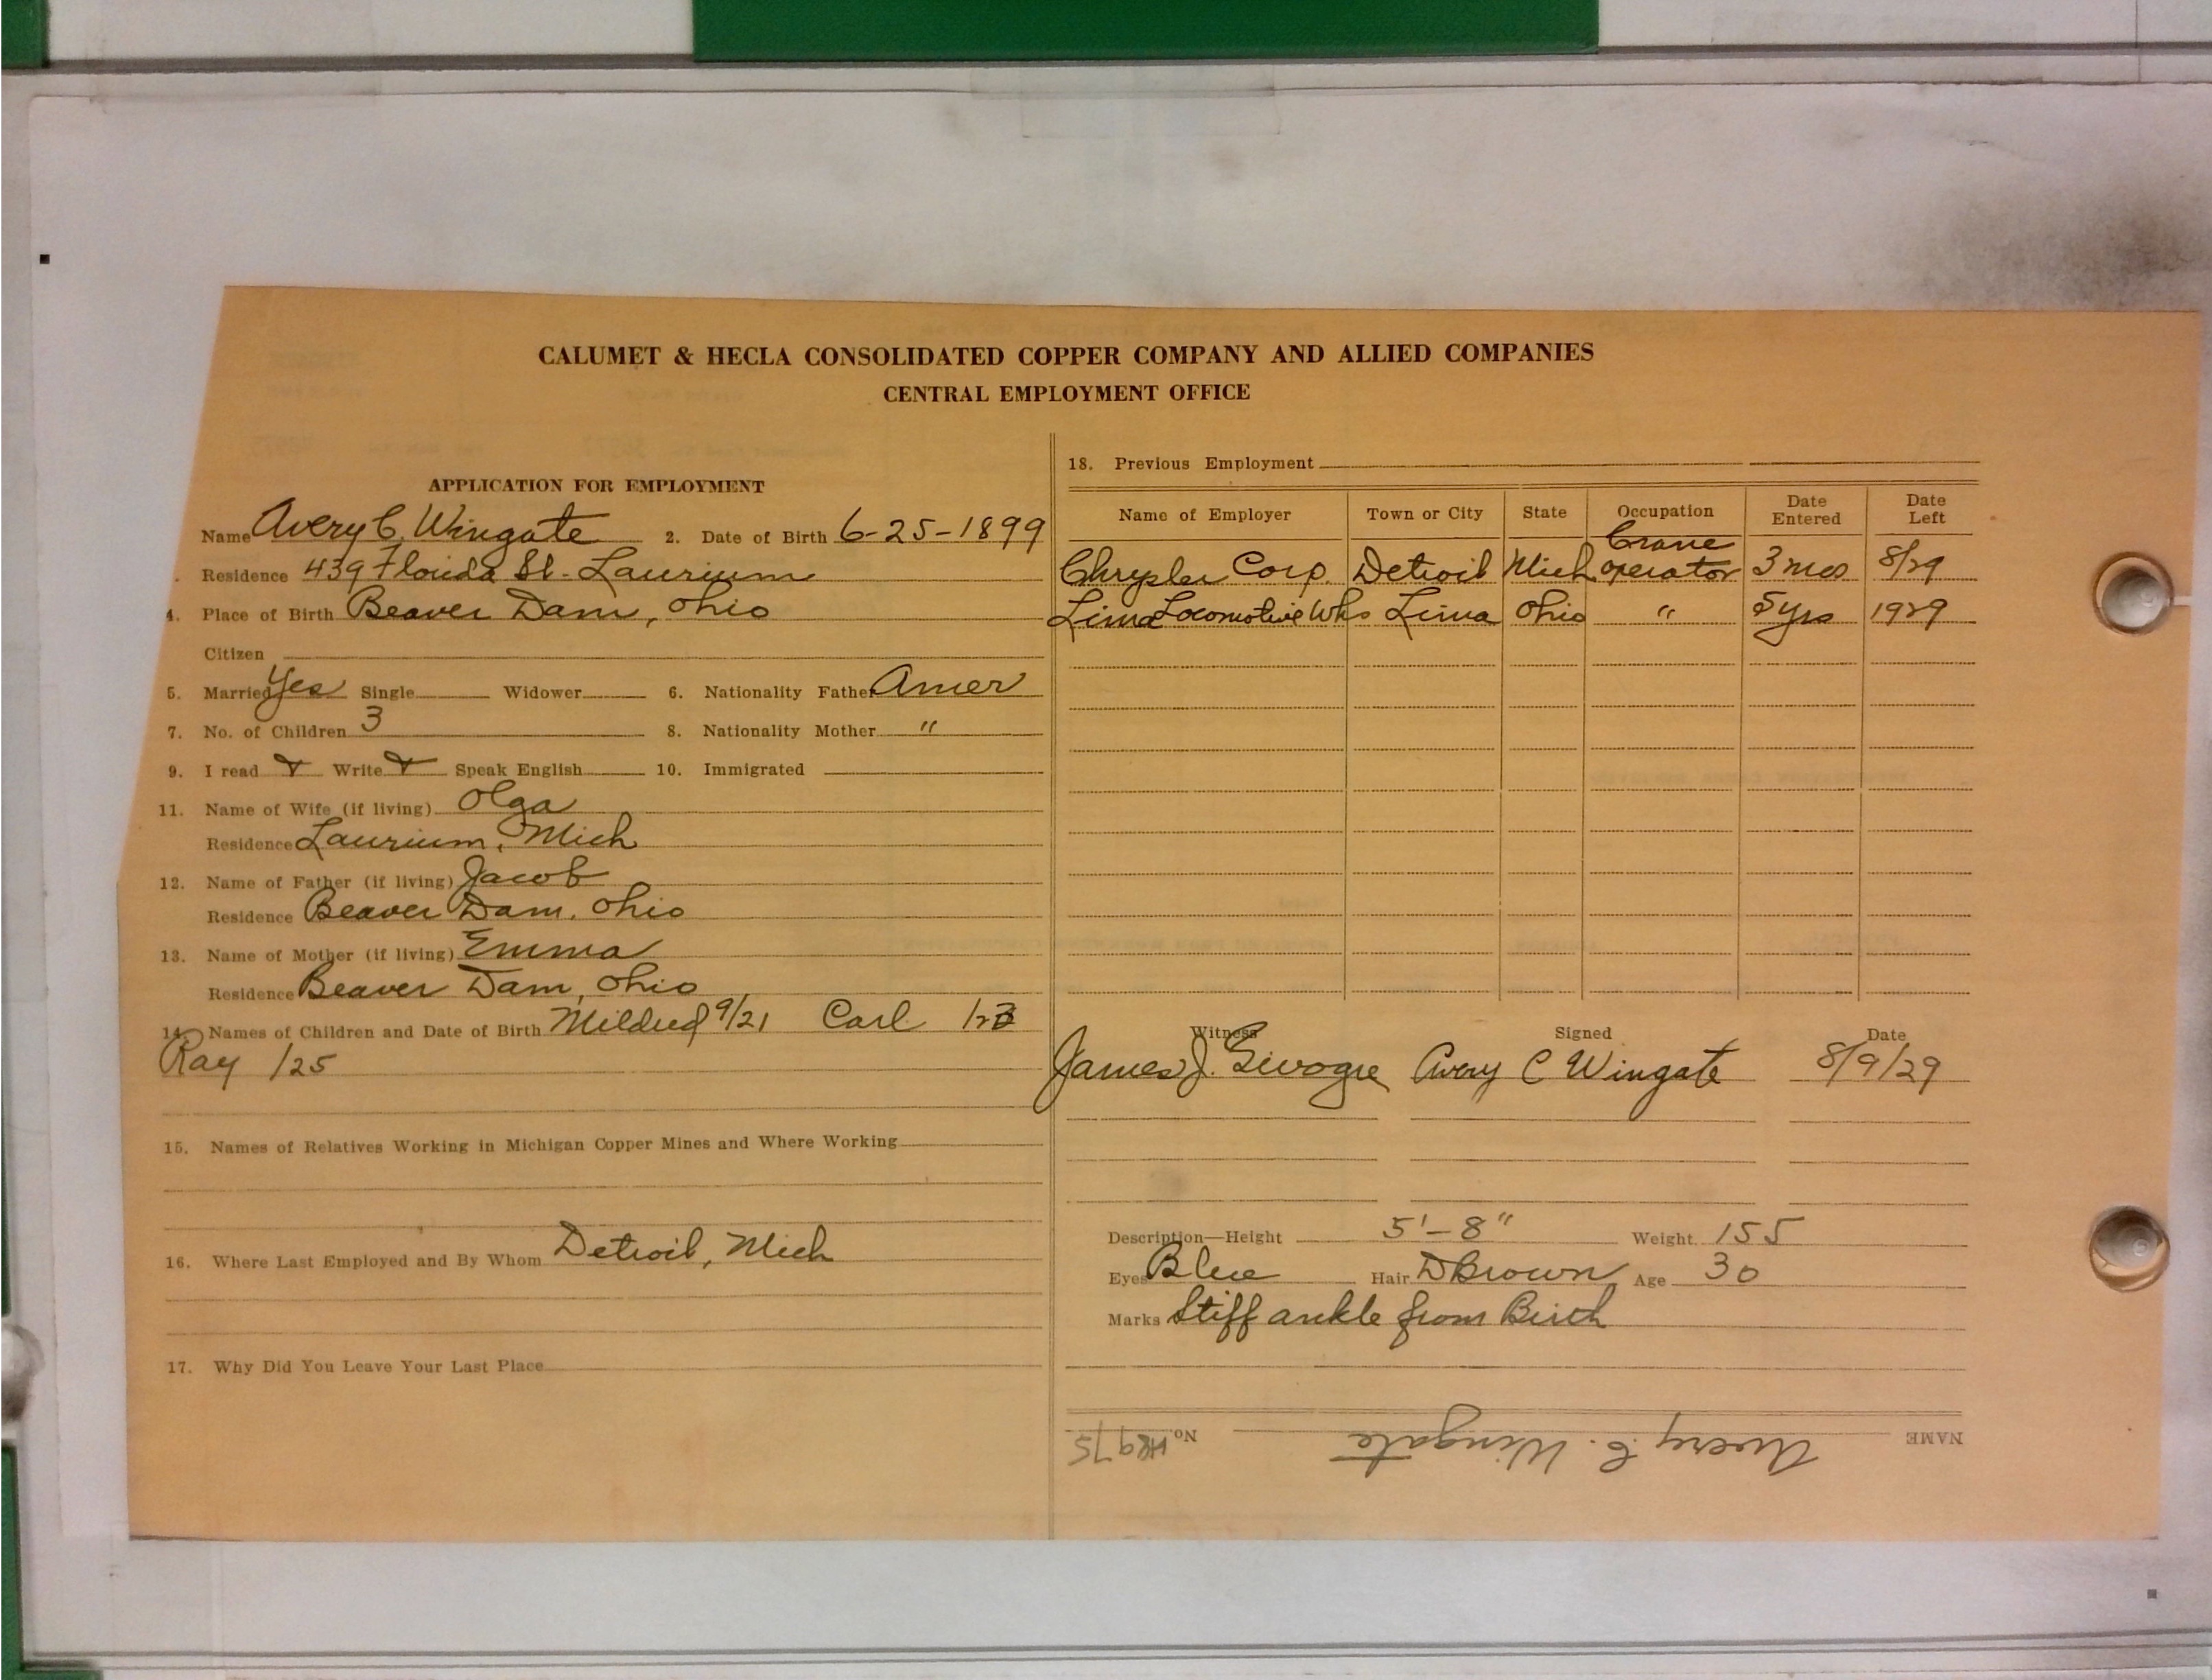 CALUMET & HECLA CONSOLIDATED COPPER COMPANY AND ALLIED COMPANIES
CENTRAL EMPLOYMENT OFFICE
APPLICATION FOR EMPLOYMENT
Name Avery C. Wingate 2. Date of Birth 6-25-1899
Residence 439 Florida St - Laurium
4. Place of Birth Beaver Dam, Ohio
Citizen
5. Married Yes Single Widower 6. Nationality Father Amer
7. No. of Children 3 8. Nationality Mother "
9. I read Write Speak English 10. Immigrated
11. Name of Wife (if living) Olga
Residence Laurium, Mich
12. Name of Father (if living) Jacob
Residence Beaver Dam, Ohio
13. Name of Mother (if living) Emma
Residence Beaver Dam, Ohio
14. Names of Children and Date of Birth Mildred 9/21 Carl 1/23
Ray 1/25
15. Names of Relatives Working in Michigan Copper Mines and Where Working
16. Where Last Employed and By Whom Detroit, Mich
17. Why Did You Leave Your Last Place
18. Previous Employment
Name of Employer Town or City State Occupation Date Entered Date Left
Chrysler Corp. Detroit Mich Crane operator 3 mos 8/29
Lima Locomotive Wks Lima Ohio " 5 yrs 1929
Witness Signed Date
James J. Avery C Wingate 8/9/29
Description—Height 5'-8" Weight 155
Eyes Blue Hair D Brown Age 30
Marks Stiff ankle from Birth
NAME Avery C. Wingate No.